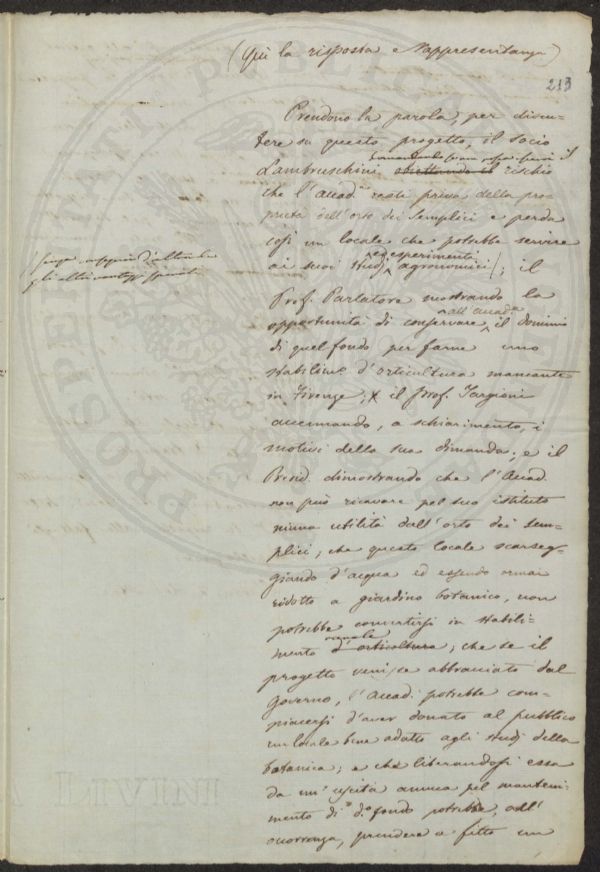 (Qui la risposta e Rappresentanza)
213
Prendono la parola, per discu-
tere su questo progetto, il socio
Lambruschini il rischio
che l'Accad.ia resti priva della pro-
prietà dell'orto dei Semplici e perda
così un locale che potrebbe servire
ai suoi studj ed esperimenti agronomici; il
Prof. Parlatore mostrando la
opportunità di conservare all'Accad.a il dominio
di quel fondo per farne uno
stabilim.o d'orticultura mancante
in Firenze; x il Prof. Targioni
accennando, a schiarimento, i
motivi della sua dimanda; e il
Presid. dimostrando che l'Accad.
non può ricavare pel suo istituto
niuna utilità dall'orto dei sem-
plici; che questo locale scarseg-
giando d'acqua ed essendo ormai
ridotto a giardino botanico, non
potrebbe convertirsi in stabili-
mento d'orticultura; che se il
progetto venisse abbracciato dal
Governo, l'Accad. potrebbe com-
piacersi d'aver donato al pubblico
un locale bene adatto agli studj della
botanica; e che liberandosi essa
da un'uscita annua pel manteni-
mento di d.o fondo potrebbe, all'
occorrenza, prendere a fitto un
gli altri vantaggi sperati
PROSPERITATI PUBLICAE